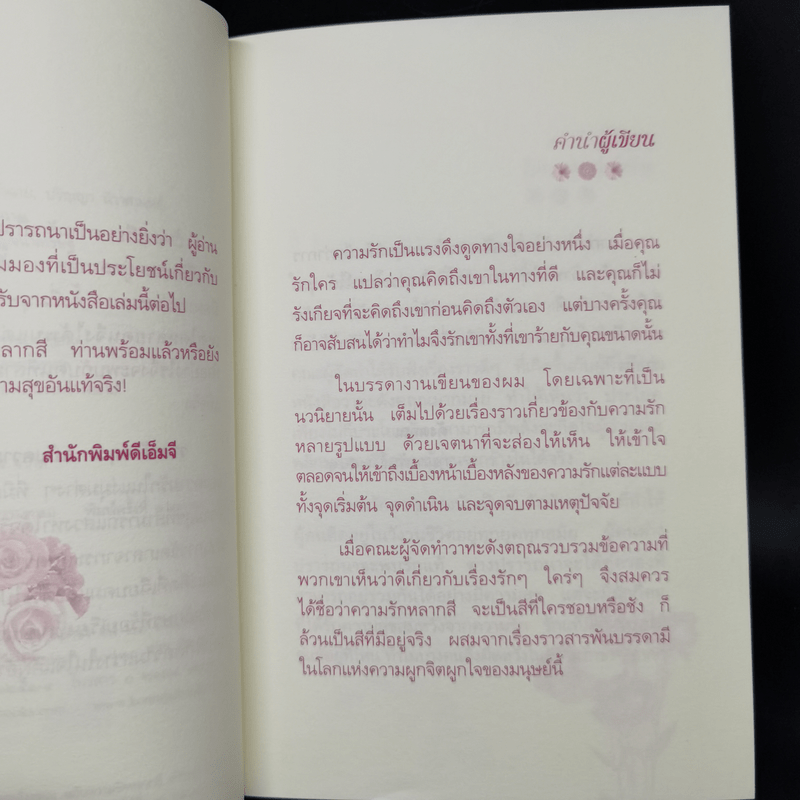 ปรารถนาเป็นอย่างยิ่งว่า ผู้อ่าน
มมองที่เป็นประโยชน์เกี่ยวกับ
รับจากหนังสือเล่มนี้ต่อไป
หลากสี ท่านพร้อมแล้วหรือยัง
ามสุขอันแท้จริง!
สำนักพิมพ์ดีเอ็มจี
คำนำผู้เขียน
ความรักเป็นแรงดึงดูดทางใจอย่างหนึ่ง เมื่อคุณ
รักใคร แปลว่าคุณคิดถึงเขาในทางที่ดี และคุณก็ไม่
รังเกียจที่จะคิดถึงเขาก่อนคิดถึงตัวเอง แต่บางครั้งคุณ
ก็อาจสับสนได้ว่าทำไมจึงรักเขาทั้งที่เขาร้ายกับคุณขนาดนั้น
ในบรรดางานเขียนของผม โดยเฉพาะที่เป็น
นวนิยายนั้น เต็มไปด้วยเรื่องราวเกี่ยวข้องกับความรัก
หลายรูปแบบ ด้วยเจตนาที่จะส่องให้เห็น ให้เข้าใจ
ตลอดจนให้เข้าถึงเบื้องหน้าเบื้องหลังของความรักแต่ละแบบ
ทั้งจุดเริ่มต้น จุดดำเนิน และจุดจบตามเหตุปัจจัย
เมื่อคณะผู้จัดทำวาทะดังตฤณรวบรวมข้อความที่
พวกเขาเห็นว่าดีเกี่ยวกับเรื่องรักๆ ใคร่ๆ จึงสมควร
ได้ชื่อว่าความรักหลากสี จะเป็นสีที่ใครชอบหรือชัง ก็
ล้วนเป็นสีที่มีอยู่จริง ผสมจากเรื่องราวสารพันบรรดามี
ในโลกแห่งความผูกจิตผูกใจของมนุษย์นี้